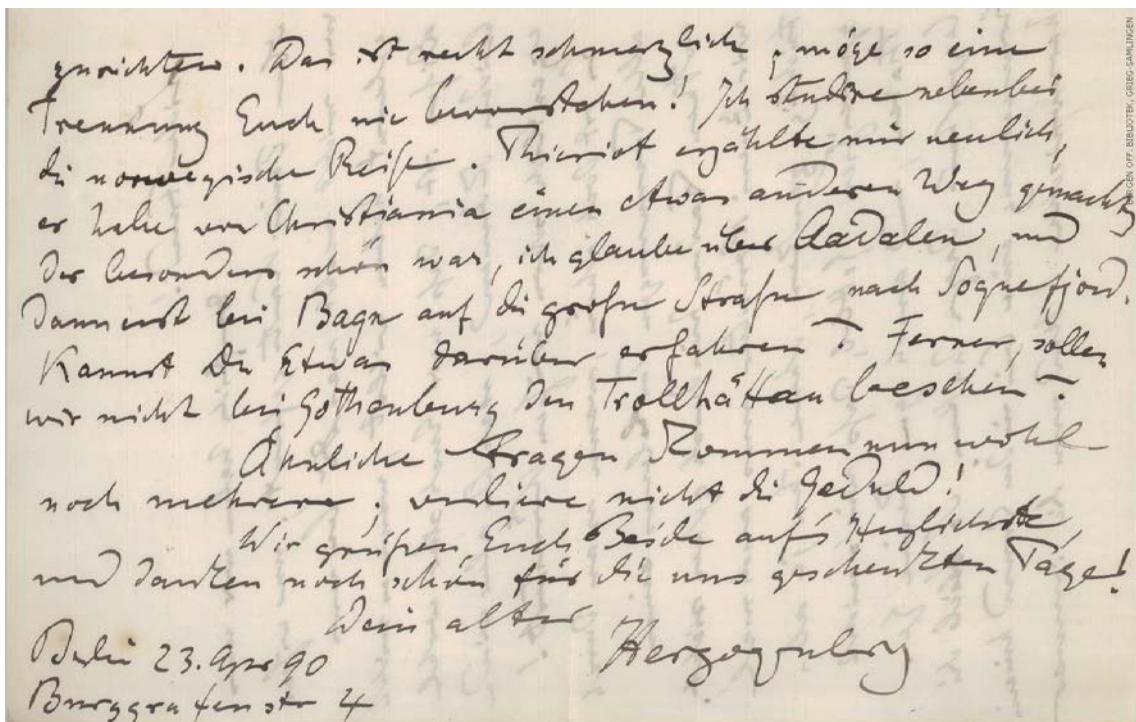 zurichten. Das ist recht schmerzlich, möge so eine
Trennung Euch nie bevorstehen! Ich studire nebenbei
die norwegische Reise. Thieriot erzählte mir neulich,
er habe von Christiania einen etwas anderen Weg gemacht,
der besonders schön war, ich glaube über Aadalen, und
dann erst bei Bagn auf die große Straße nach Sognefjord.
Kannst Du Etwas darüber erfahren? Ferner, sollen
wir nicht bei Gothenburg den Trollhättan besehen?
Ähnliche Fragen kommen nun wohl
noch mehrere; verliere nicht die Geduld!
Wir grüßen Euch Beide aufs Herzlichste,
und danken noch schön für die uns geschenkten Tage!
Dein alter
Herzogenberg
Berlin 23. Apr 90
Burggrafenstr 4
BERGEN OFF. BIBLIOTEK, GRIEG-SAMLINGEN